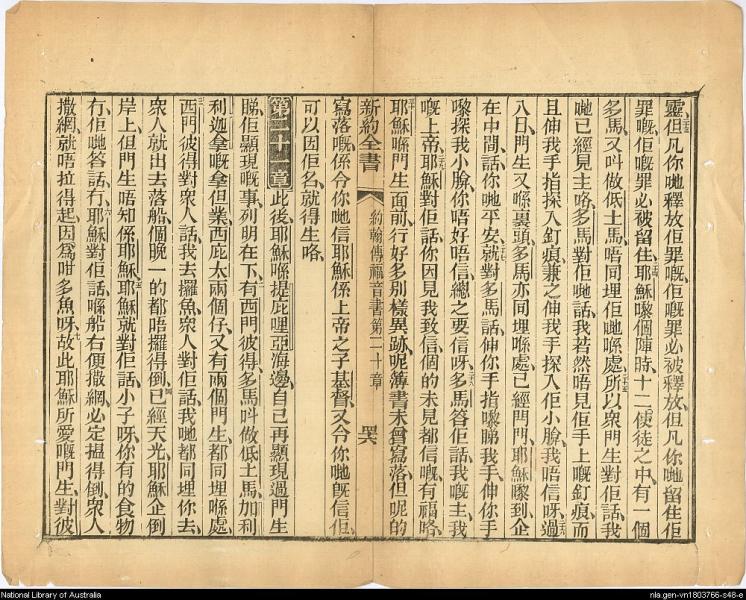 靈、但凡你哋釋放佢罪嘅、佢嘅罪必被釋放、但凡你哋留住佢
罪嘅、佢嘅罪必被留住、耶穌嚟個陳時、十二使徒之中、有一個
多馬、又叫做低土馬、唔同埋佢哋喺處、所以衆門生對佢話、我
哋已經見主咯、多馬對佢哋話、我若然唔見佢手上嘅釘痕、而
且伸我手指探入釘痕、兼之伸我手探入佢小膁、我唔信呀、過
八日、門生又喺裏頭、多馬亦同埋喺處、已經閂門、耶穌嚟到、企
在中間、話、你哋平安、就對多馬話、伸你手指嚟睇我手、伸你手
嚟探我小膁、你唔好唔信、總之要信呀、多馬答佢話、我嘅主、我
嘅上帝、耶穌對佢話、你因見我致信、個的未見都信嘅、有福咯、
耶穌喺門生面前、行好多別樣異跡、呢簿書未曾寫落、但呢的
新約全書 約翰傳福音書第二十章
寫落嘅、係令你哋信耶穌係上帝之子基督、又令你哋旣信佢、
可以因佢名、就得生咯、
第二十一章 此後耶穌喺提庇哩亞海邊、自己再顯現過門生
睇、佢顯現嘅事、列明在下、有西門彼得、多馬叫做低土馬、加利
利迦拿嘅拿但業、西庇太兩個仔、又有兩個門生、都同埋喺處、
西門彼得對衆人話、我去攞魚、衆人對佢話、我哋都同埋你去、
衆人就出去落船、個晚一的都唔攞得倒、已經天光、耶穌企倒
岸上、但門生唔知係耶穌、耶穌就對佢話、小子呀、你有的食物
冇、佢哋答話、冇、耶穌對佢話、喺船右便撒網、必定揾得倒、衆人
撒網、就唔拉得起、因爲咁多魚呀、故此耶穌所愛嘅門生、對彼